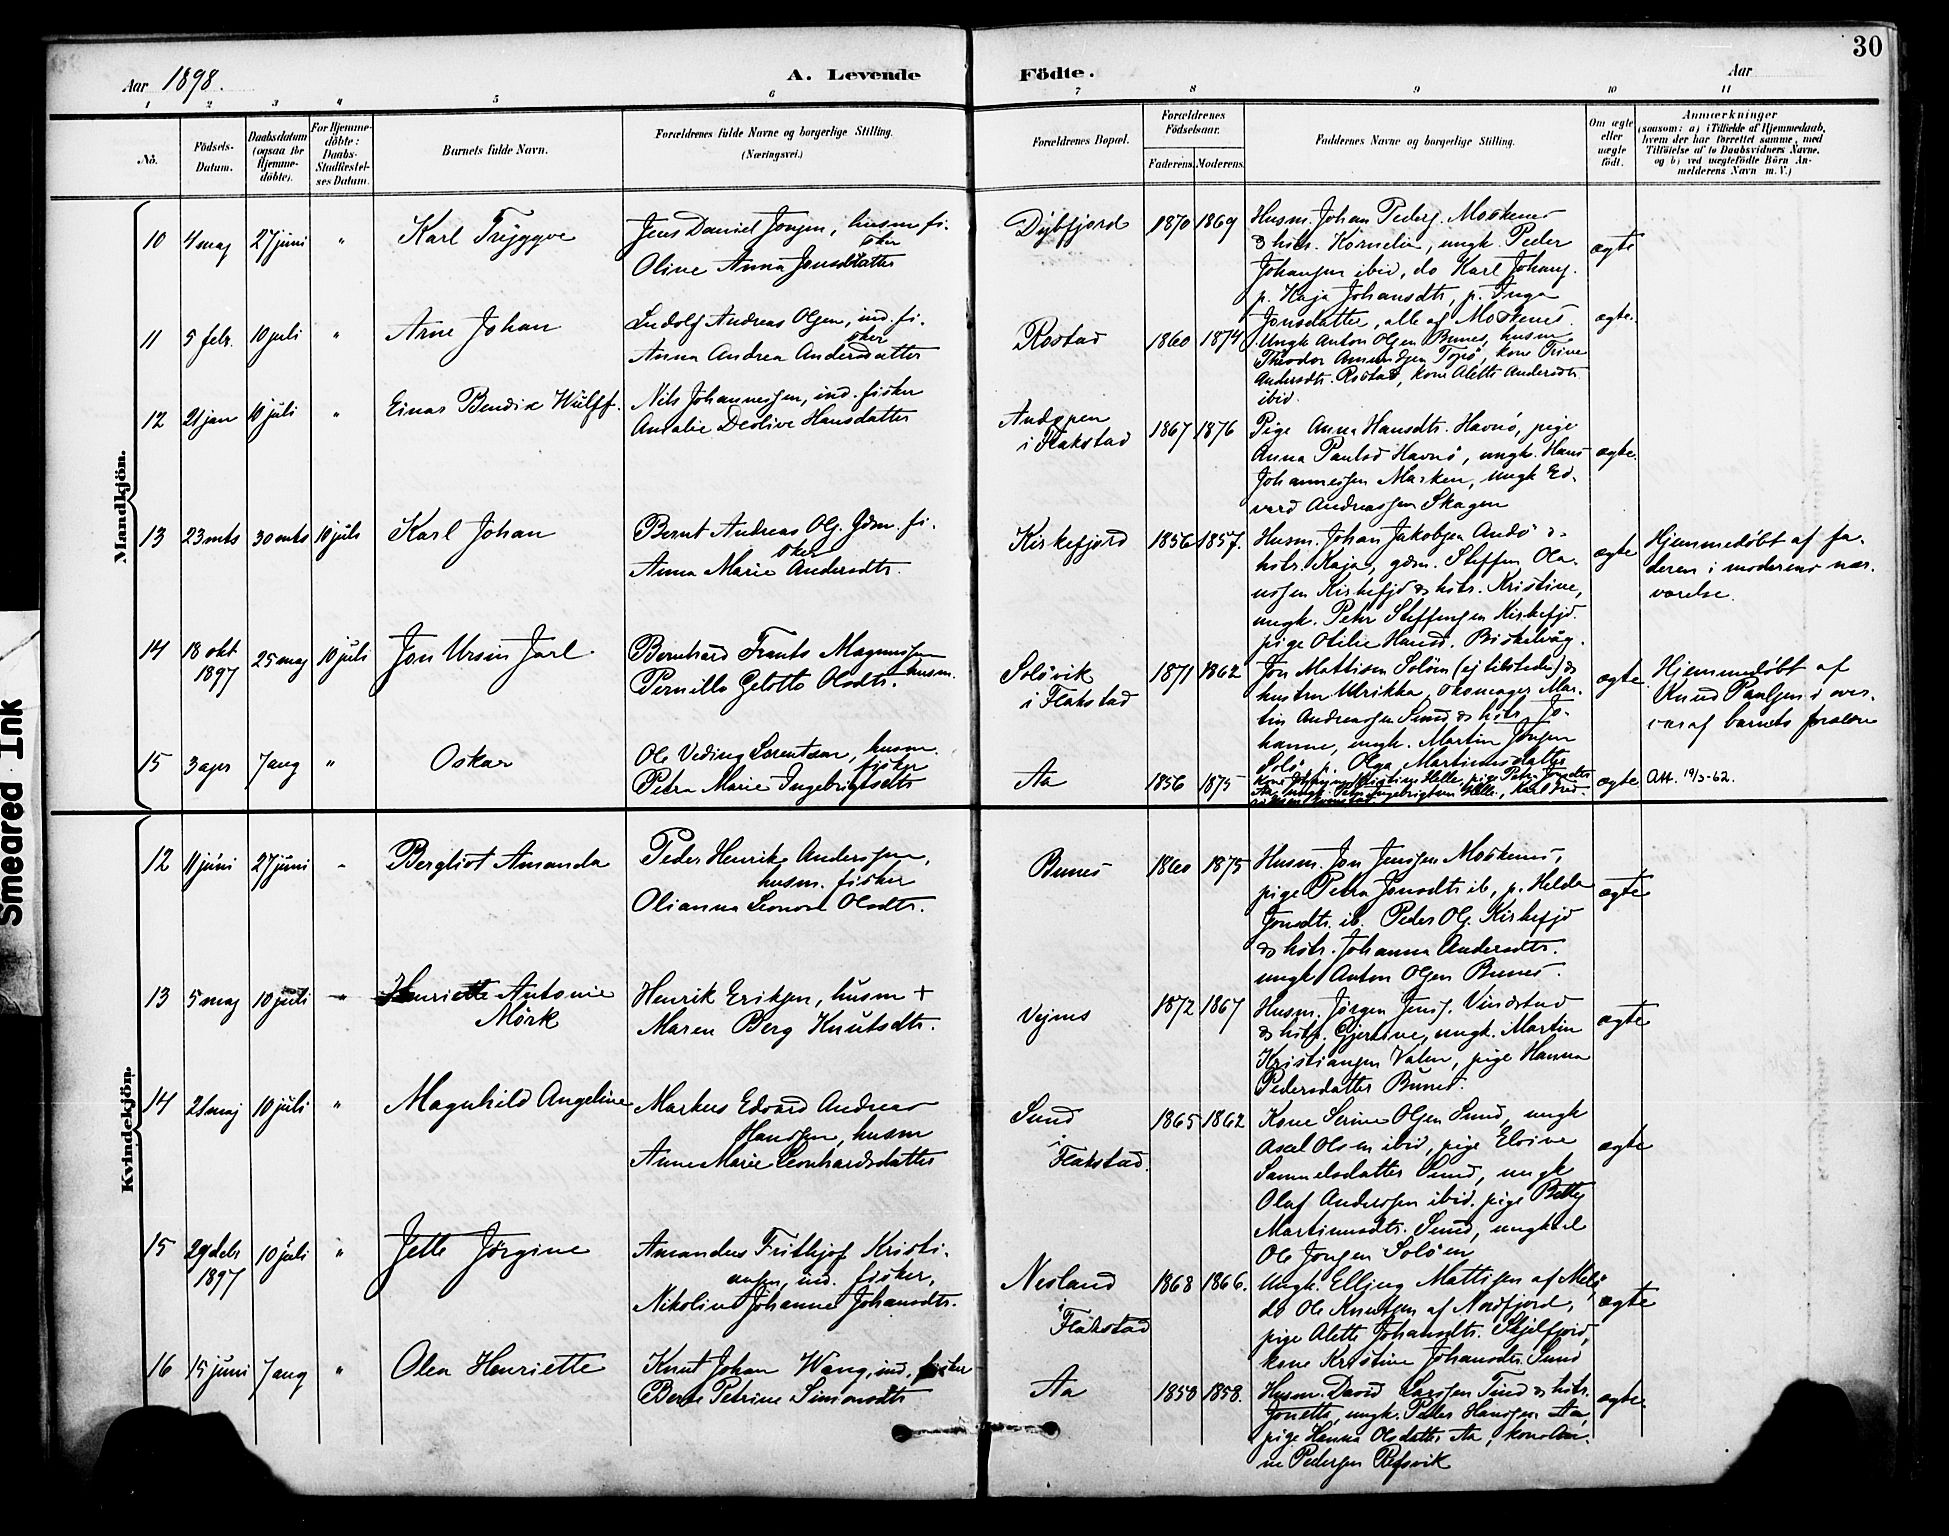 30
Aar 1898.
A. Levende
Födte.
Aar
1 2 3 4 5 6 7 8 9 10 11
No.
Födsels-Datum.
Daabsdatum (ogsaa for Hjemme-döbte).
For Hjemme-döbte: Daabs-Stadfæstel-ses Datum.
Barnets fulde Navn.
Forældrenes fulde Navne og borgerlige Stilling.
(Næringsvei.)
Forældrenes Bopæl.
Forældrenes Födselsaar.
Faderens. Moderens.
Faddernes Navne og borgerlige Stilling.
Om ægte eller uægte födt.
Anmærkninger
(saasom: a) i Tilfælde af Hjemmedaab, hvem der har forrettet samme, med Tilföielse af to Daabsvidners Navne, og b) ved uægtefödte Börn Anmelderens Navn m. V.)
Mandkjön.
10 4 maj 27 juni " Karl Tryggve
Jens Daniel Jonsen, husm. fisker
Oline Anna Jonsdatter
Dybfjord 1870 1869
Husm. Johan Peders. Moskenes
& hstr. Kornelia, ungk. Peder
Johansen ibid, do Karl Johans.
p. Kaja Johansdtr, p. Inga
Jonsdatter, alle af Moskenes.
ægte
11 5 febr. 10 juli " Arne Johan
Ludolf Andreas Olsen, ind. fisker
Anna Andrea Andersdatter
Rostad 1860 1874
Ungk. Anton Olsen Bunes, husm.
Theodor Amundsen Topö, kone Trine
Andersdtr. Rostad, kone Alette Andersdtr
ibid
ægte.
12 21 jan 10 juli " Einar Bendix Wulff.
Nils Johannessen, ind. fisker
Amalie Deolive Hansdatter
Andopen
i Flakstad 1867 1876
Pige Anna Hansdtr. Havnö, pige
Anna Paulsd Havnö, ungk. Hans
Johannessen Marken, ungk Edvard Andreassen Skagen
ægte.
13 23 mts 30 mts 10 juli Karl Johan
Bernt Andreas Ols. gdm. fisker
Anna Marie Andersdtr.
Kirkefjord 1856 1857.
Husm. Johan Jakobsen Andö &
hstr. Kaja, gdm. Steffen Olaussen Kirkefjd & hstr. Kristine,
ungk. Peter Steffensen Kirkefjd.
pige Otilie Hansd.
ægte
Hjemmedöbt af faderen i moderens nærværelse.
14 18 okt 1897 25 maj 10 juli Jon Ursin Jarl
Bernhard Frants Magnussen husm.
Pernille Gelotte Olsdtr.
Solövik
i Flakstad 1871 1862
Jon Mattisen Solöen (ej tilstede) &
hustru Ulrikka, skomager Martin Andreassen Sund & hstr. Johanne, ungk. Martin Jonsen
Solö, p. Olga Martinusdatter
ægte
Hjemmedöbt af
Knud Paulsen i overvær af barnets forældre
15 3 apr 7 aug " Oskar
Ole Vediug Lorentsen, husm.
fisker
Petra Marie Ingebrigtsdtr
Aa 1856 1875
ægte
Att. 19/3-62.
Kvindekjön.
12 11 juni 27 juni " Bergliot Amanda
Peder Henrik Anderssen,
husm. fisker
Olianna Leonore Olsdtr.
Bunes 1860 1875
Husm. Jon Jenssen Moskenes,
pige Petra Jonsdtr ib, p. Helda
Jonsdtr. ib. Peder Ols. Kirkefjd
& hstr. Johanna Andersdtr.
ungk Anton Olsen Bunes.
ægte
13 5 maj 10 juli " Henriette Antonie
Mörk
Henrik Eriksen, husm +
Maren Berg Knutsdtr.
Vejnes 1872 1867
Husm. Jörgen Jens. Vindstad
& hstr. Gjertine, ungk. Martin
Kristiansen Valen, pige Hanna
Pedersdatter Bunes.
ægte
14 21 maj 10 juli " Magnhild Angeline
Markus Edvard Andreas
Hanssen, husm
Anne Marie Leonhardsdatter
Sund
i Flakstad. 1865 1862
Kone Serine Olsen Sund, ungk
Axel Olsen ibid, pige Elvine
Samuelsdatter Sund, ungk
Olaf Anderssen ibid. pige Betty
Martinusdtr. Sund, ungkarl
Ole Jonsen Solöen
ægte
15 29 debr 1897 10 juli " Jette Jörgine
Amandus Frithjof Kristiansen, ind. fisker,
Nikoline Johanne Johansdtr.
Nesland
i Flakstad 1868 1866.
Ungk. Elling Mattisen af Melö,
do Ole Knutsen af Nordfjord,
pige Alette Johansdtr. Skjelfjord,
kone Kristine Johansdtr. Sund
ægte
16 15 juni 7 aug " Olea Henriette
Knut Johan Wang, ind. fisker
Berte Petrine Simonsdtr
Aa 1858 1858.
Husm. David Larssen Tind & hstr.
Jonette, ungk. Peder Hanssen Aa,
pige Hanna Olsdatter Aa, kone Anne Pedersen Refsvik
ægte.
Smeared Ink